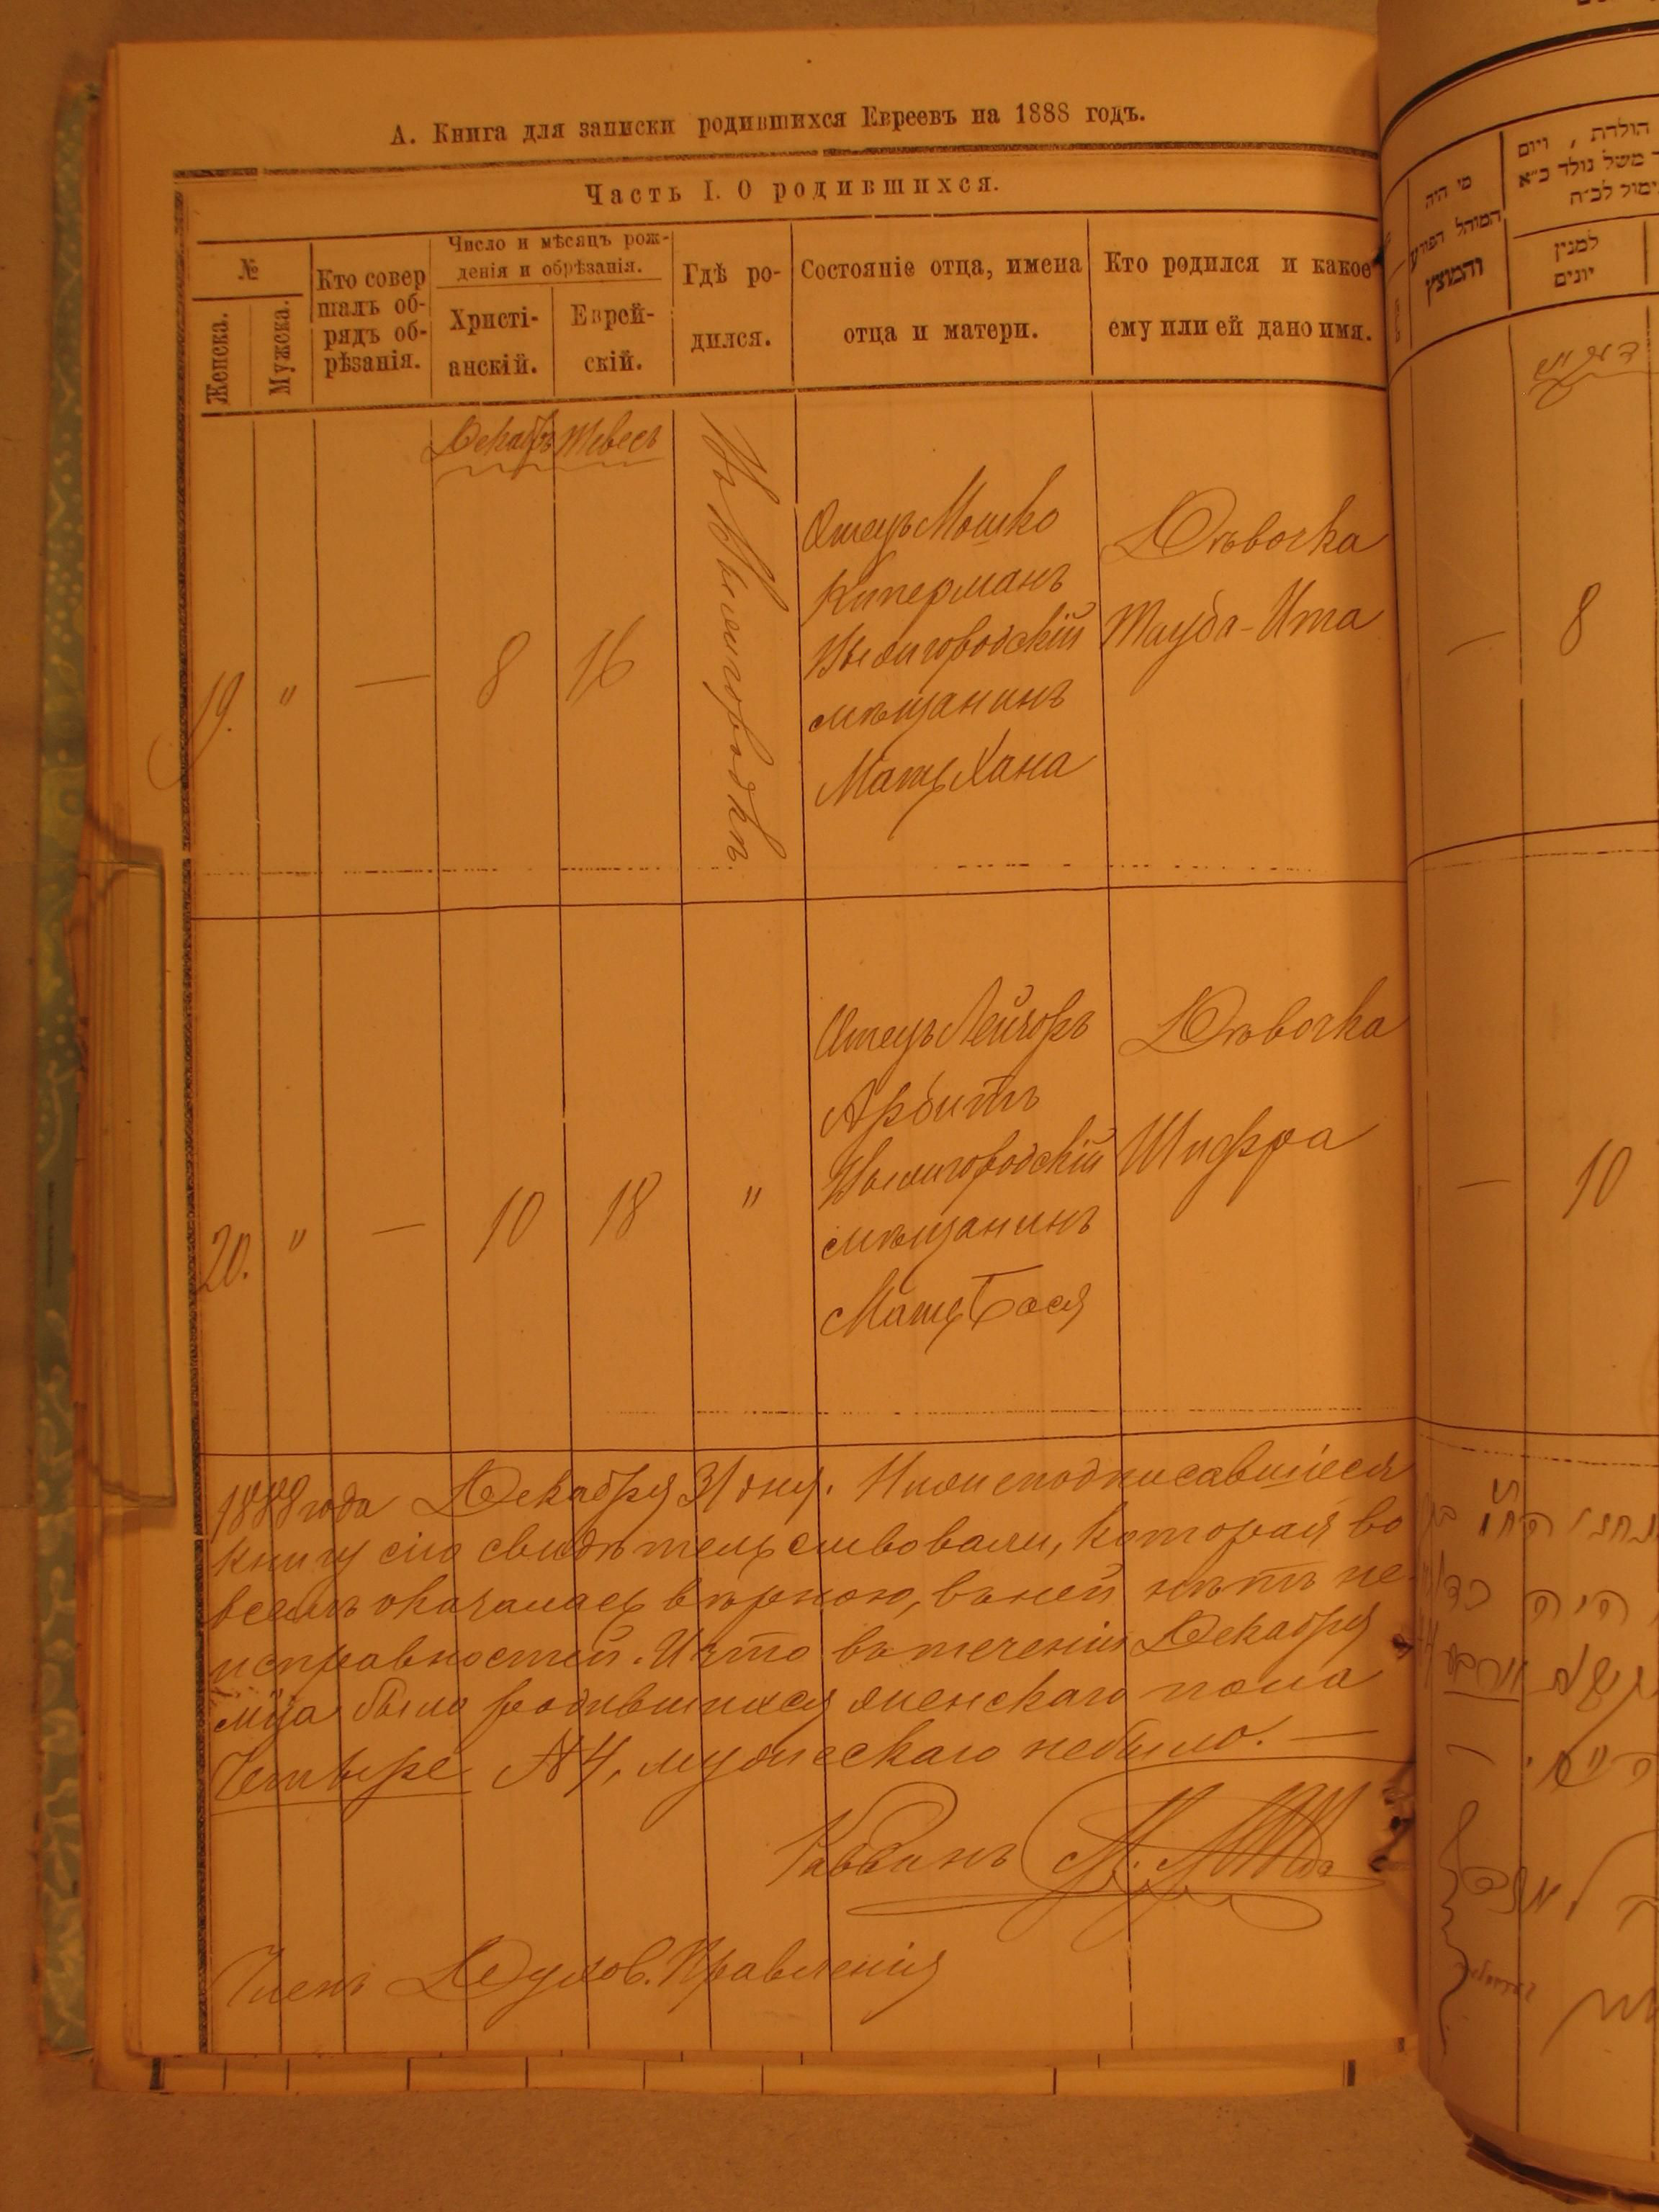 А. Книга для записки родившихся Евреевъ на 1888 годъ.
Часть I. О родившихся.
№
Женска.
Мужска.
Кто совер
шалъ об-
рядъ об-
рѣзанія.
Число и мѣсяцъ рож-
денія и обрѣзанія.
Христі-
анскій.
Еврей-
скій.
Гдѣ ро-
дился.
Состояніе отца, имена
отца и матери.
Кто родился и какое
ему или ей дано имя.
Декабрь Тевесъ
19. " — 8 16
Въ Вышгородѣ
Отецъ Мошко
Киперманъ
Вышгородскій
мѣщанинъ
Мать Хана
Дѣвочка
Тауба-Ита
20. " — 10 18 "
Отецъ Лейзоръ
Арбитъ
Вышгородскій
мѣщанинъ
Мать Бася
Дѣвочка
Шифра
1888 года Декабря 31 дня. Нижеподписавшіеся
книгу сію свидѣтельствовали, которая во
всемъ оказалась вѣрною, въ ней нѣтъ не-
исправностей. И что въ теченіи Декабря
мца было родившихся женскаго пола
Четыре №4, мужескаго небыло. —
Раввинъ
Членъ Духов. Правленія
מי היה
המוהל הפורע
והמוצץ
הולדת , ויום
משל נולד כ״א
ימול לכ״ח
למנין
יונים
— 8
— 10